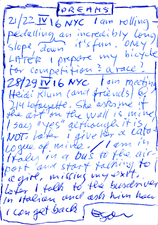 DREAMS
21/22 IV 16 NYC I am rolling-
pedalling an incredibly long
slope down it's fun. only
LATER I prepare my bicycle
for competition: a race!
28/29 IV 16 NYC I am meeting
Heidi Klum (and friends) @
214 Lafayette. She asks me if
the art on the wall is mine,
I say "yes" although it is
NOT. Later I give her a cata-
logue of mine. / I am in
Italy in a bus to the air-
port and start talking to
a girl, missing my exit.
Later I talk to the busdriver
in Italian and ask him how
I can get back